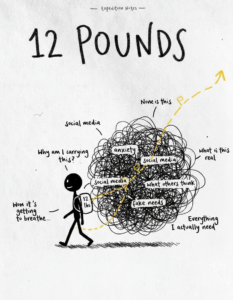 Expedition Notes
12 POUNDS
None is this
social media
anxiety
social media
Why am I carrying
this?
what is this
real
social media
what others think
12
lbs
fake needs
Now it's
getting
to breathe...
Everything
I actually need